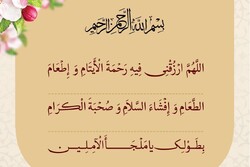 بِسْمِ اللَّهِ الرَّحْمَنِ الرَّحِيمِ
اللَّهُمَّ ارْزُقْنِي فِيهِ رَحْمَةَ الْأَيْتَامِ وَ إِطْعَامَ
الطَّعَامِ وَ إِفْشَاءَ السَّلَامِ وَ صُحْبَةَ الْكِرَامِ
بِطَوْلِكَ يا مَلْجَأَ الْآمِلِينَ